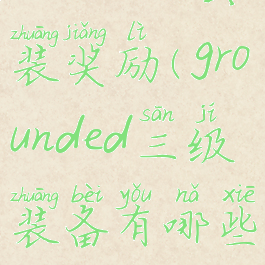 zhuāng jiǎng lì
装奖励(gro
sān jí
unded三级
zhuāng bèi yǒu nǎ xiē
装备有哪些